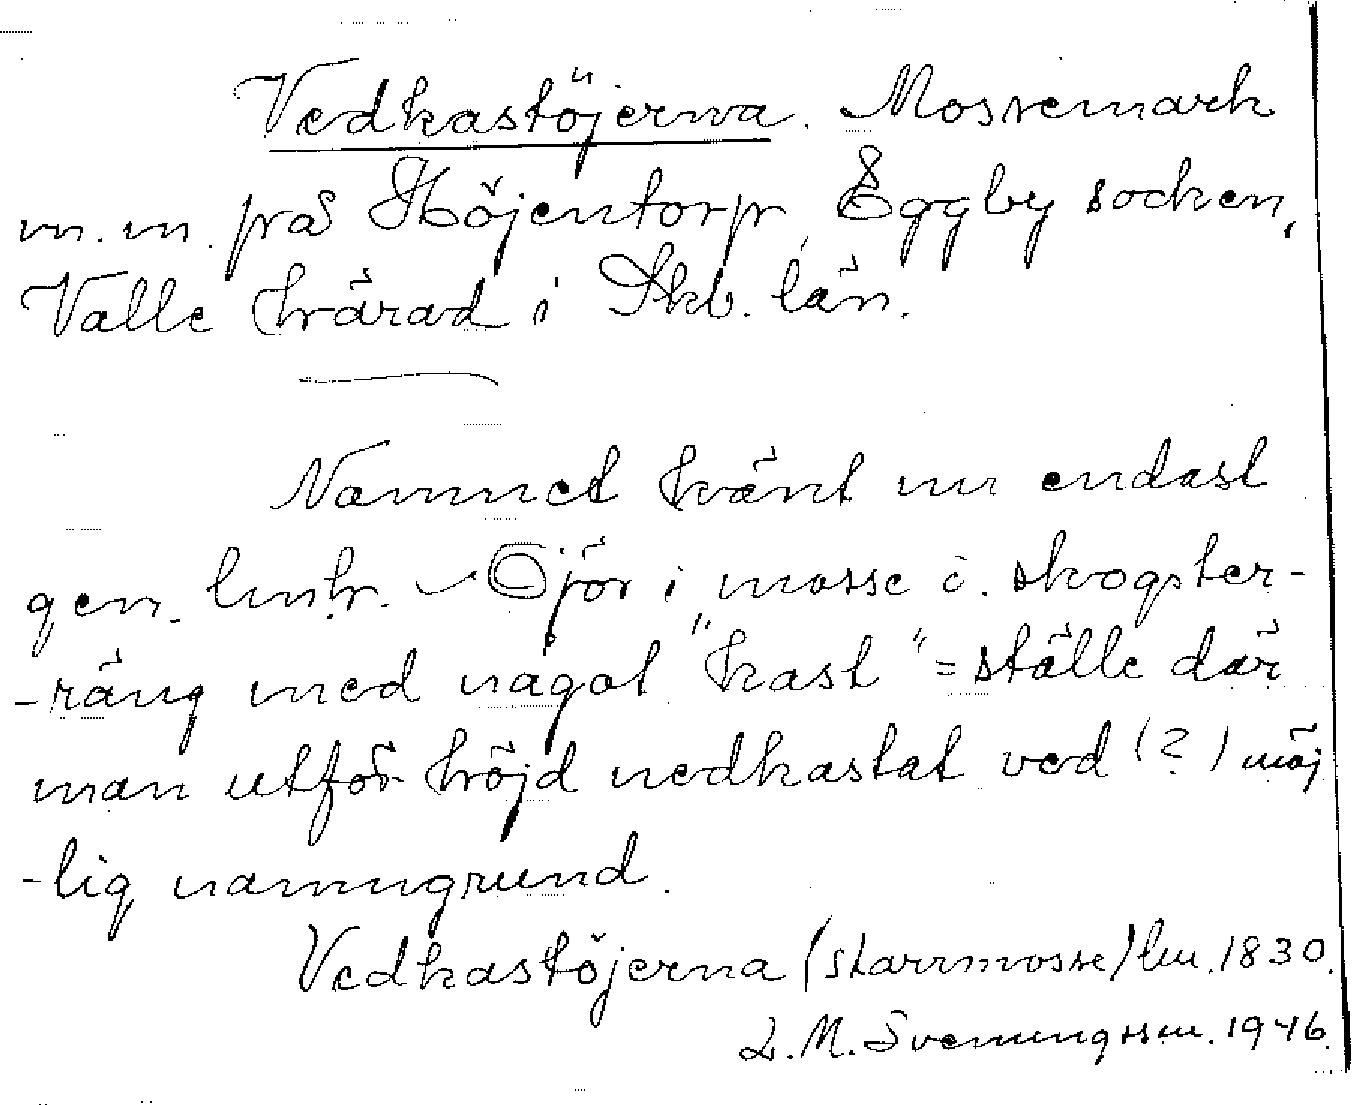 Vedkastöjerna. Mossemark
m.m. på Höjentorp, Eggby socken,
Valle härad i Skb. län.
Namnet känt nu endast
gen. lmhr. Öjör i mosse o. skogster-
-räng med något "kast" = ställe där
man utför höjd nedkastat ved (?) möj
-lig namngrund.
Vedkastöjerna (starrmosse) lm. 1830.
L.M. Svenungsson. 1946.